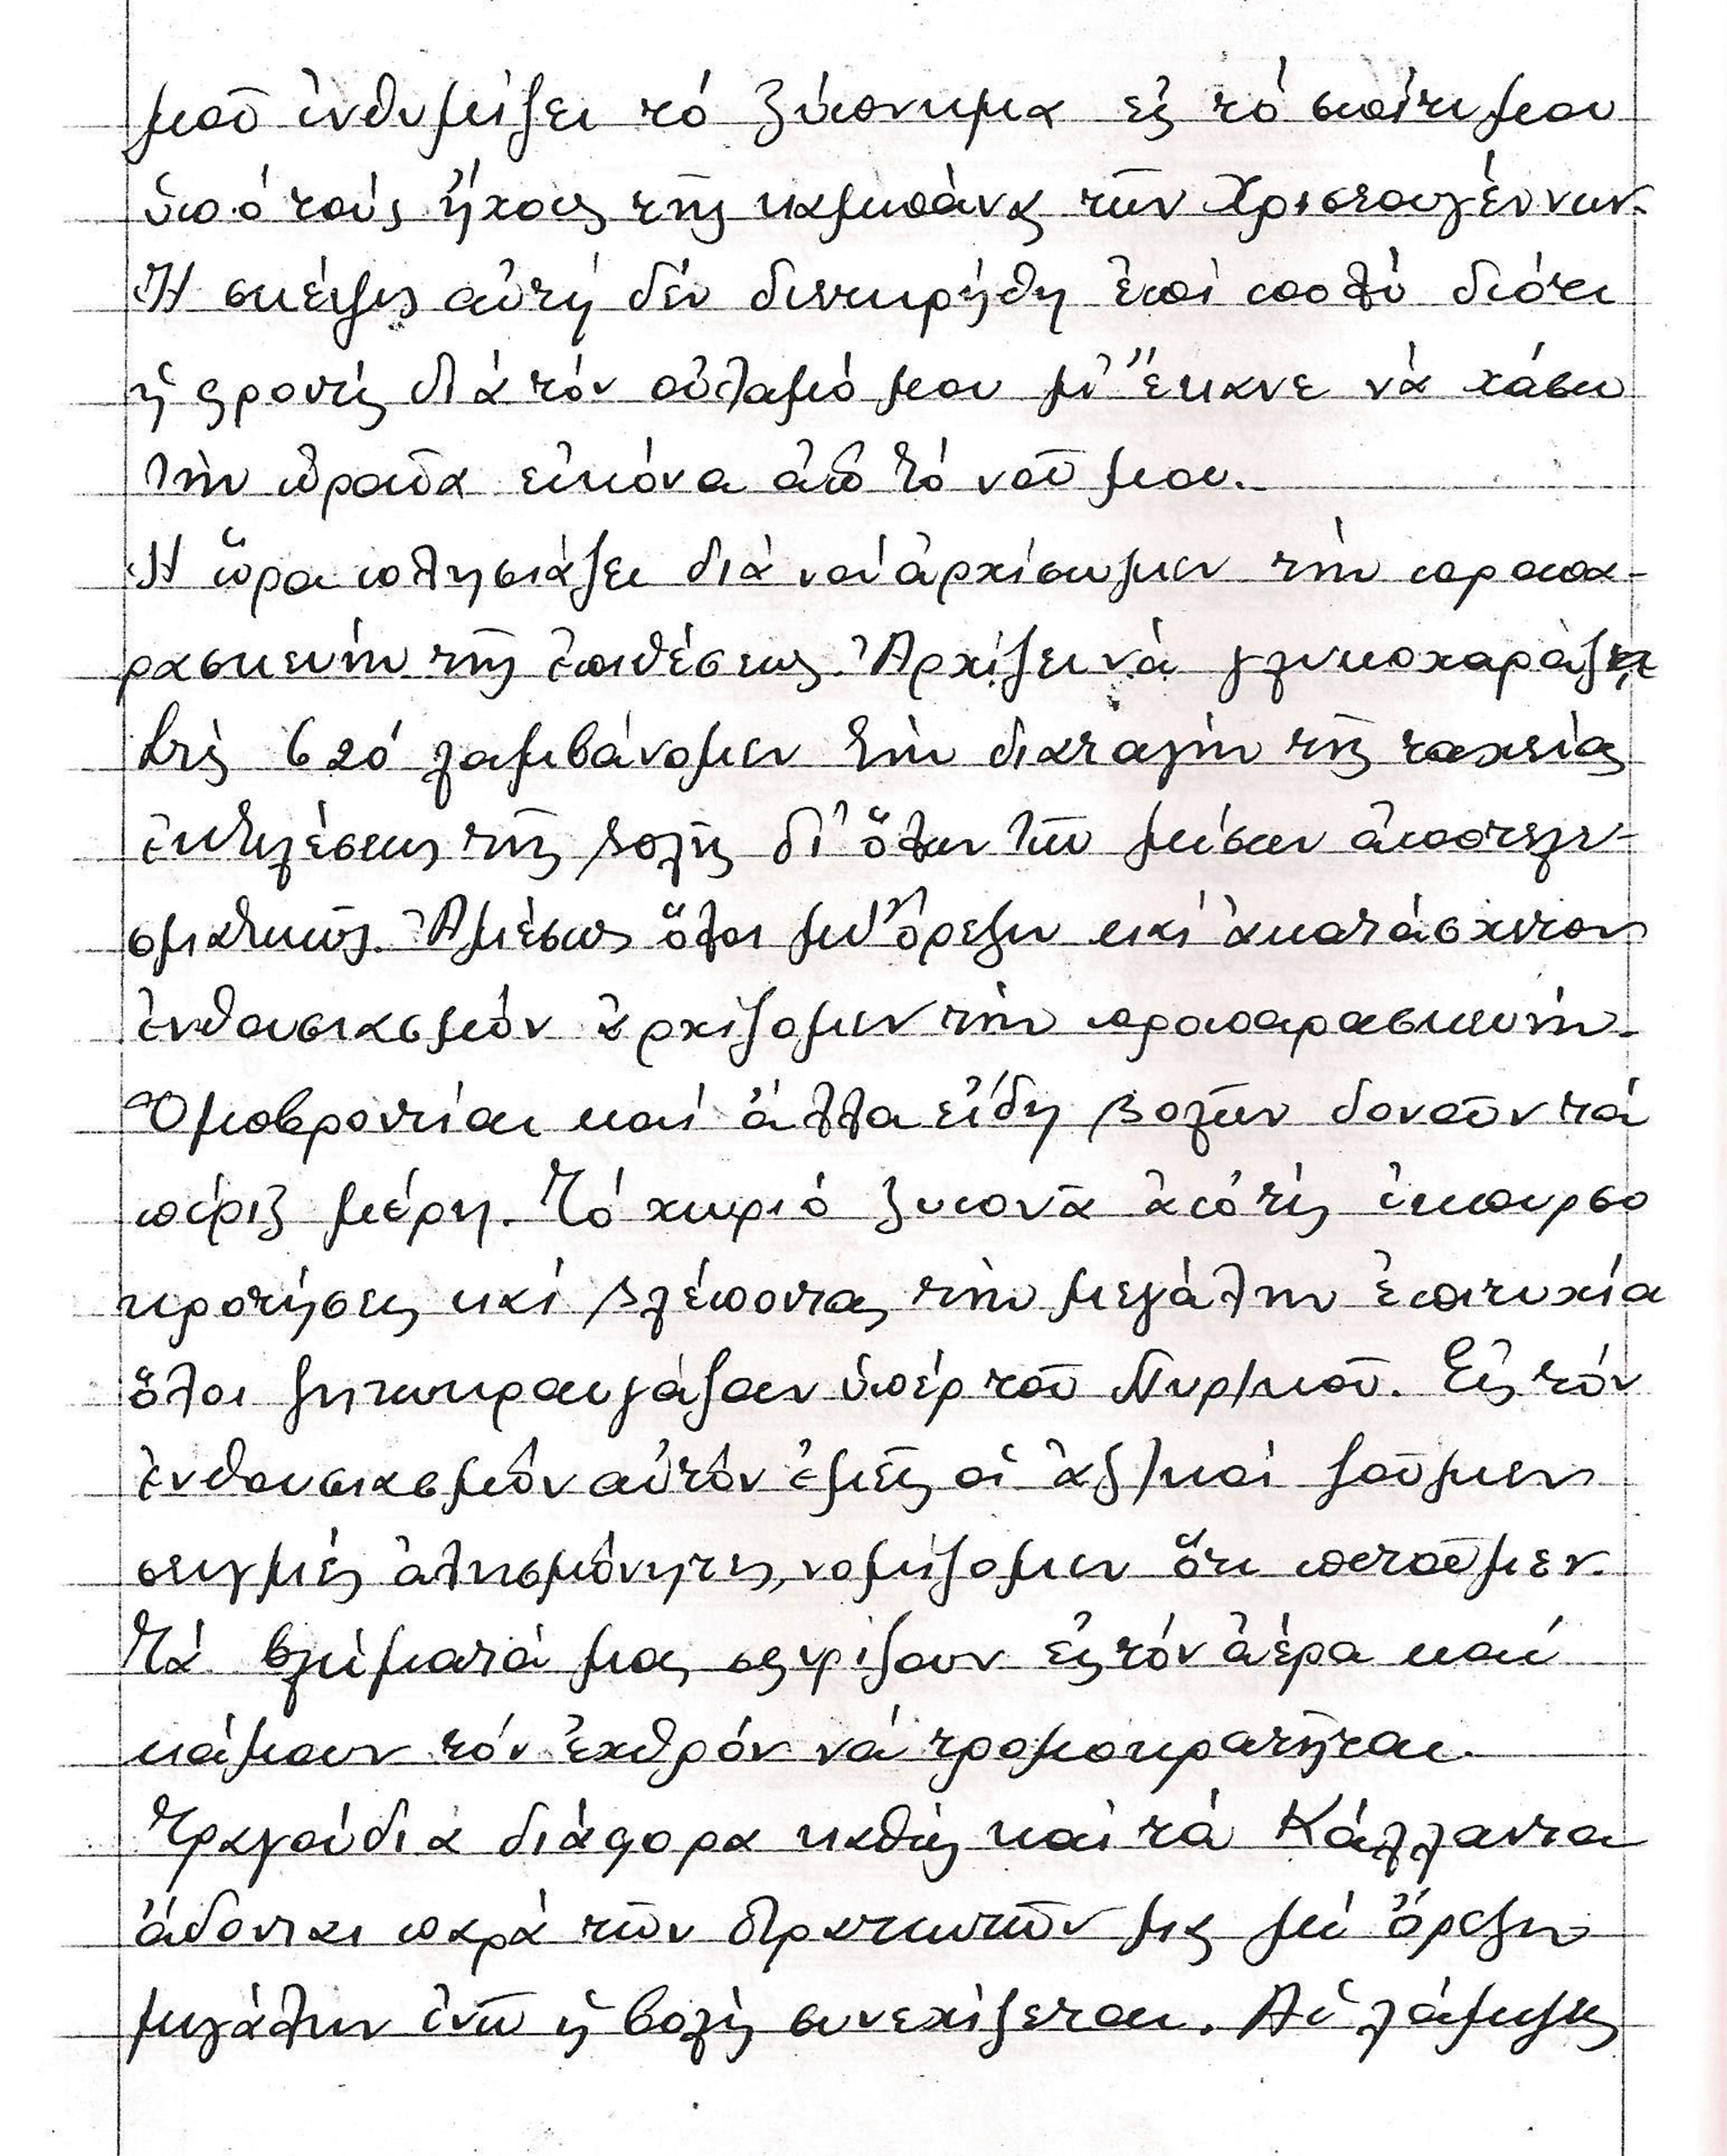 μοῦ ἐνθυμίζει τό ξύπνημα εἰς τό σπίτι μου
ὑπό τούς ἤχους τῆς καμπάνας τῶν Χριστουγέννων.
Ἡ σκέψις αὐτή δέν διετηρήθη ἐπί πολύ διότι
ἡ φροντίς διά τόν οὐλαμό μου μ' ἔκανε νά χάσω
τήν ὡραῖα εἰκόνα ἀπό τό νοῦ μου.
Ἡ ὥρα πλησιάζει διά νά ἀρχίσωμεν τήν προπα-
ρασκευήν τῆς ἐπιθέσεως. Ἀρχίζει νά γλυκοχαράζει
στίς 620 λαμβάνομεν τήν διαταγήν τῆς ταχείας
ἐκτελέσεως τῆς βολῆς δι' ὅλων τῶν μέσων ἀποτελε-
σματικῶς. Ἀμέσως ὅλοι μέ ὄρεξιν καί ἀκατάσχετον
ἐνθουσιασμόν ἀρχίζομεν τήν προπαρασκευήν.
Ὁμοβροντίαι καί ἄλλα εἴδη βολῶν δονοῦν τά
πέριξ μέρη. Τό χωριό ξυπνᾶ ἀπό τίς ἐκπυρσο
κροτήσεις καί βλέποντας τήν μεγάλην ἐπιτυχία
ὅλοι ζητωκραυγάζουν ὑπέρ τοῦ Πυρ/κοῦ. Εἰς τόν
ἐνθουσιασμόν αὐτόν ἐμεῖς οἱ ἀξ/κοί ζοῦμεν
στιγμές ἀλησμόνητες, νομίζομεν ὅτι πετοῦμεν.
Τά βλήματά μας σφυρίζουν εἰς τόν ἀέρα καί
κάμουν τόν ἐχθρόν νά τρομοκρατῆται.
Τραγούδια διάφορα καθώς καί τά Κάλλαντα
ἄδονται παρά τῶν στρατιωτῶν μας μέ ὄρεξιν
μεγάλην ἐνῶ ἡ βολή συνεχίζεται. Αἱ λάμψεις